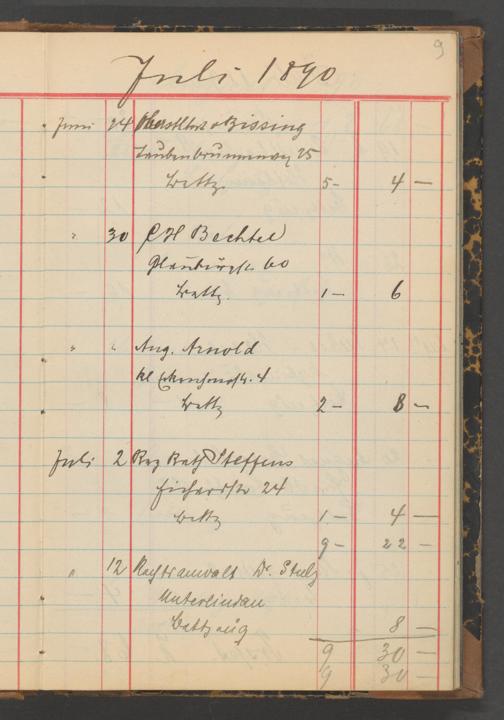 9
Juli 1890
Juni 24 v Bissing
Taubenbrunnenweg 25
Bettz. 5 - 4 -
" 30 C H Bechtel
Glauburgstr 60
Bettz. 1 - 6
" " Aug. Arnold
kl 4
Bettz 2 - 8 -
Juli 2 Reg Rath Steffens
Eichardstr 24
Bettz 1 - 4 -
9 - 22 -
" 12 Rechtsanwalt Dr. Stulz
Unterlindau
Bettzeug 8 -
9 30 -
9 30 -